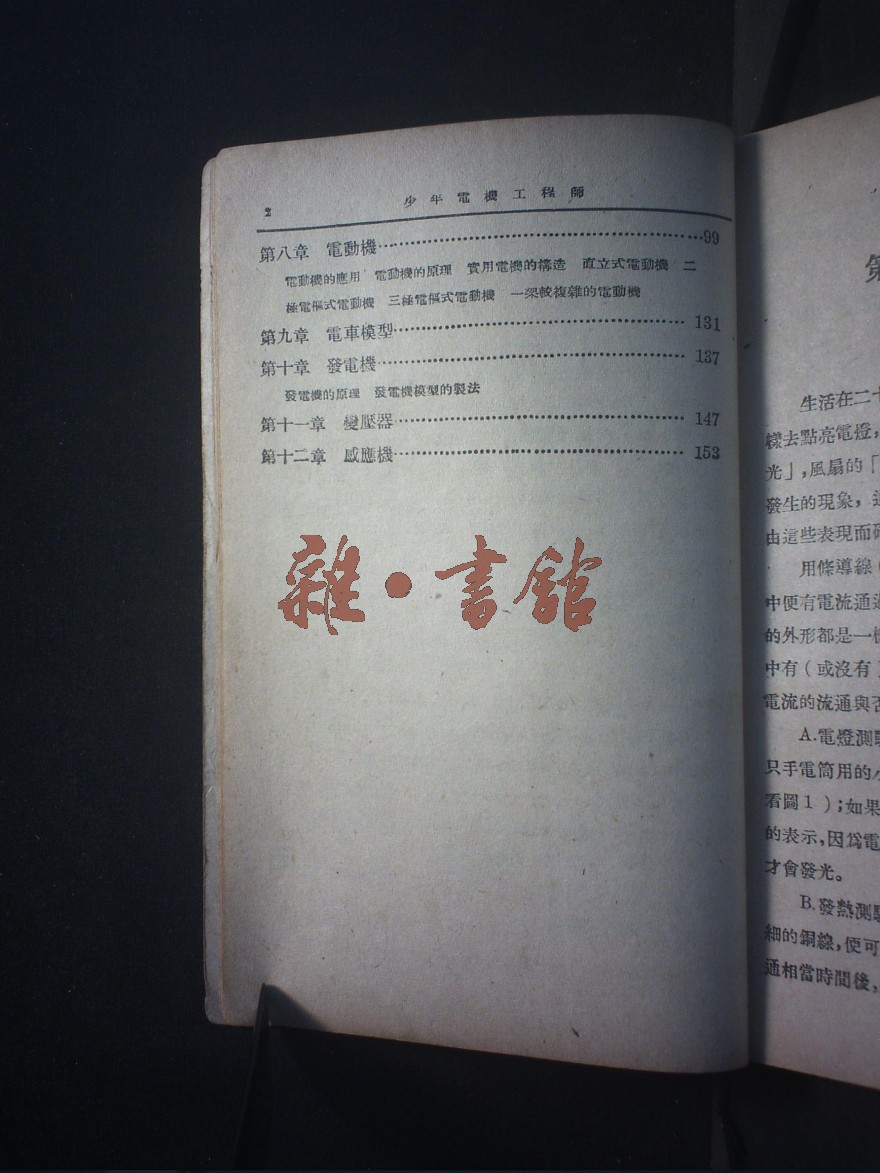 2 少年電機工程師
第八章 電動機……99
電動機的應用 電動機的原理 實用電機的構造 直立式電動機 二
極電樞式電動機 三極電樞式電動機 一架較複雜的電動機
第九章 電車模型……131
第十章 發電機……137
發電機的原理 發電機模型的製法
第十一章 變壓器……147
第十二章 感應機……153
雜·書館
第
生活在二十
樣去點亮電燈,
光」,風扇的「
發生的現象,
由這些表現而
用條導線(
中便有電流通過
的外形都是一
中有(或沒有)
電流的流通與否
A.電燈測驗
只手電筒用的小
看圖1);如果
的表示,因爲電
才會發光。
B.發熱測驗
細的銅線,便可
通相當時間後,